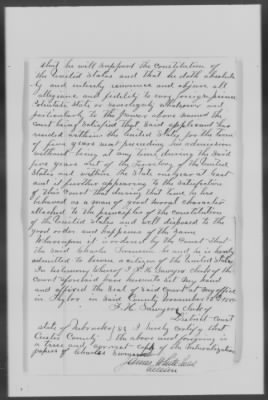 that he will support the Constitution of
the United States and that he doth absolute
ly and entirely renounce and abjure all
allegiance and fidelity to every foreign prince
Potentate State or sovereignty whatever and
particularly to the power above named the
court being satisfied that said applicant has
resided within the United States for the term
of five years next preceding his admission
without being at any time during the said
five years out of the territory of the United
States and within the State one year at least
and it further appearing to the satisfaction
of this Court that during that time he has
behaved as a man of good moral character
attached to the principles of the constitution
of the United States and well disposed to the
good order and happiness of the same
Whereupon it is ordered by the Court that
the said Charles be and he is hereby
admitted to become a citizen of the United States
In testimony whereof I F. H. Sawyer clerk of the
court aforesaid have hereunto set my hand
and affixed the seal of said court at my office
in Taylor in said County November
F. H. Sawyer clerk of
District Court
State of Nebraska SS I hereby certify that
Custer County the above and foregoing is
a true and correct copy of the naturalization
papers of Charles
James Whitehead